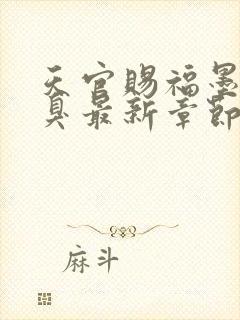 天官赐福墨
臭最新章节
麻斗